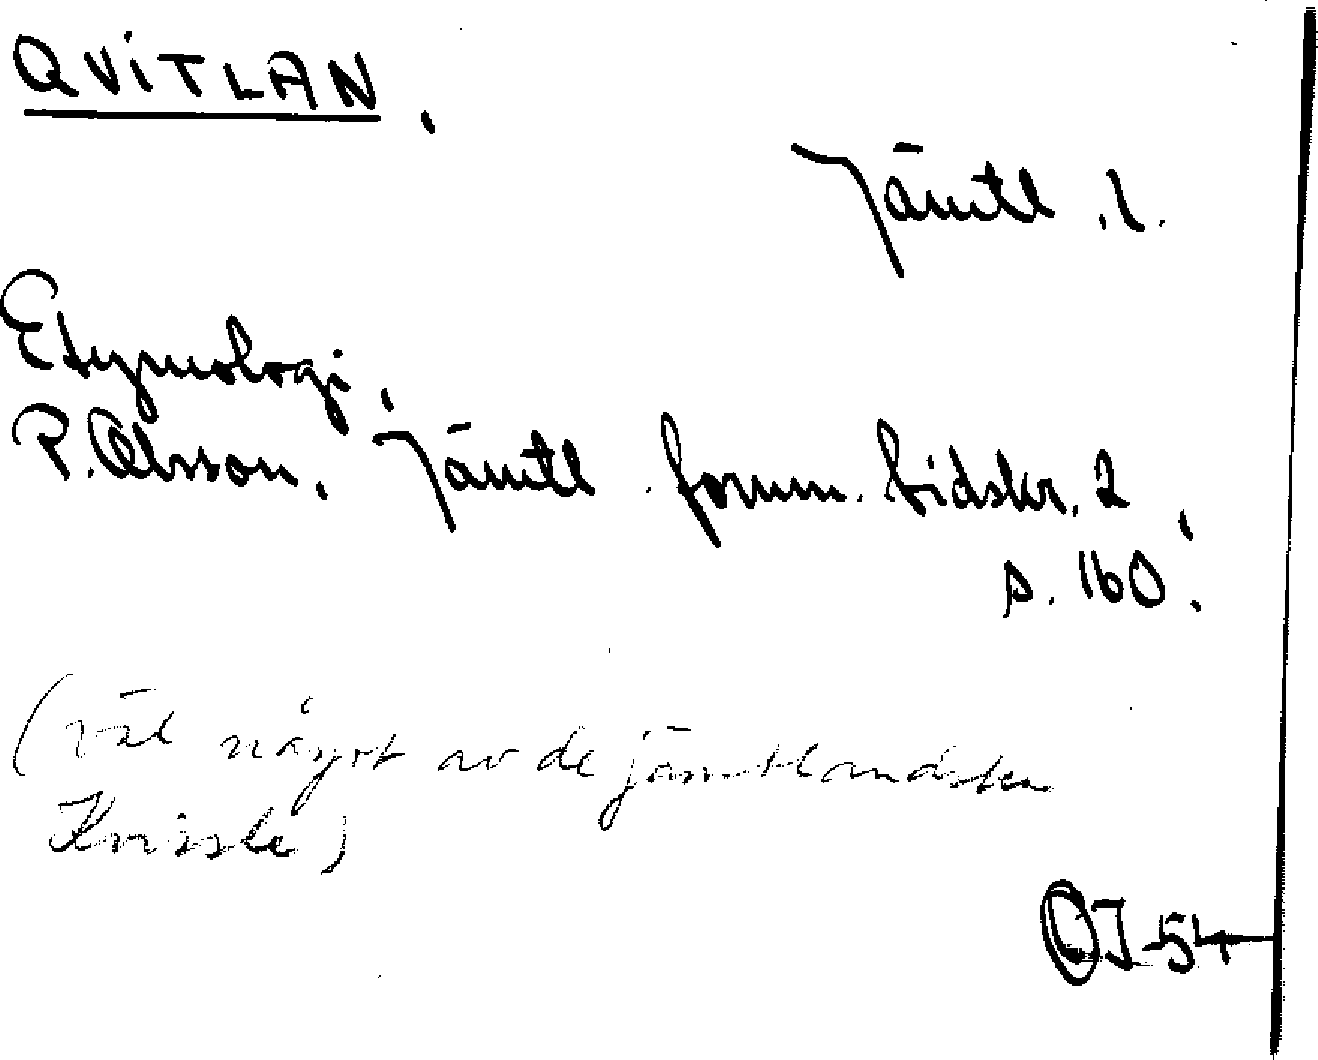 QVITLAN.
Jämtl. l.
Etymologi.
P. Olsson. Jämtl. fornm. tidskr. 2,
s. 160.
(väl något av de jämtländska
Kvissle)
OJ-54